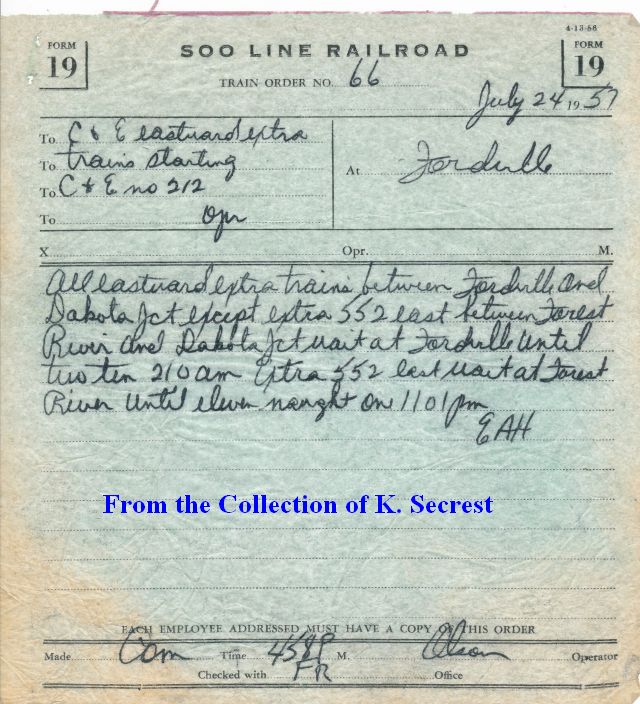 4-13-56
FORM 19
SOO LINE RAILROAD
FORM 19
TRAIN ORDER NO. 66
July 24 1957
To C & E eastward extra
To trains starting
To C & E no 212
To Opr
At Fordville
X Opr. M.
All eastward extra trains between Fordville and
Dakota Jct except extra 552 east between Forest
River and Dakota Jct wait at Fordville until
two ten 210 am Extra 552 east wait at Forest
River until eleven naught one 1101 pm
EAH
From the Collection of K. Secrest
EACH EMPLOYEE ADDRESSED MUST HAVE A COPY OF THIS ORDER
Made Com Time 458P M. Olson Operator
Checked with FR Office